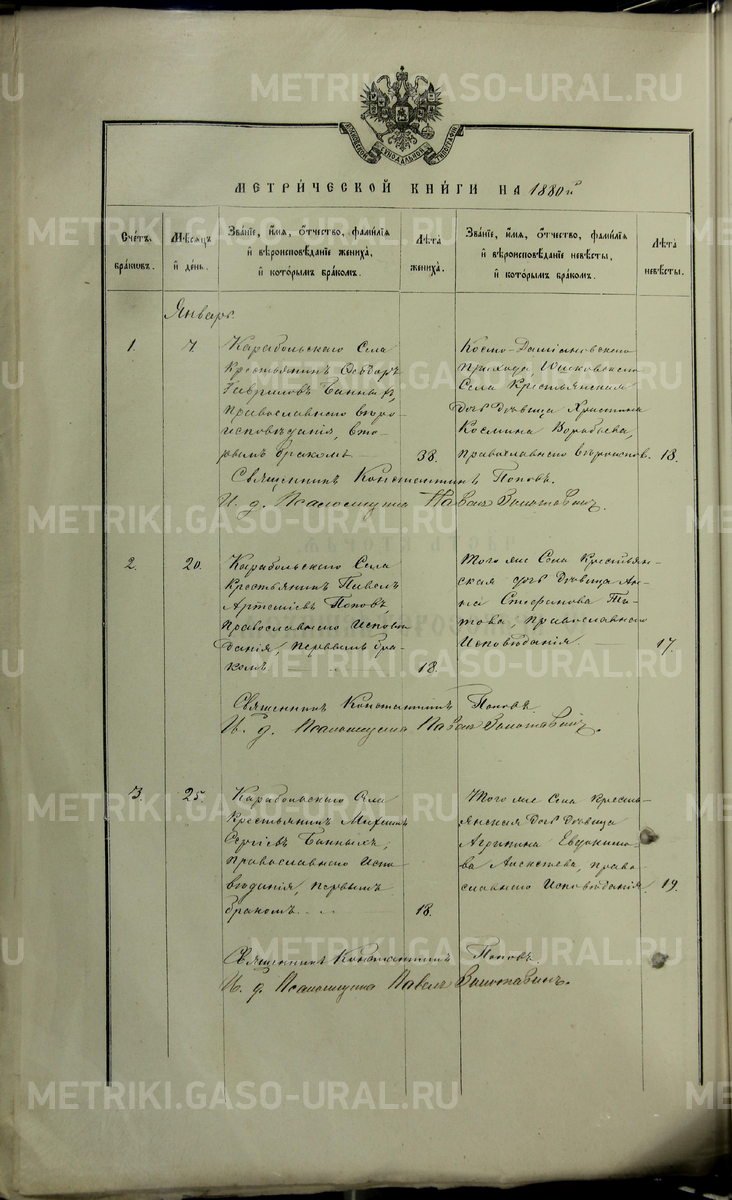 МЕТРИ́ЧЕСКОЙ КНИ́ГИ НА 1880 г.
Сче́тъ бра́ковъ.
Мѣ́сяцъ и де́нь.
Зва́ніе, и́мя, о́тчество, фами́лія и вѣроисповѣ́даніе жениха́, и кото́рымъ бра́комъ.
Лѣта̀ жениха̀.
Зва́ніе, и́мя, о́тчество, фами́лія и вѣроисповѣ́даніе невѣ́сты, и кото́рымъ бра́комъ.
Лѣта̀ невѣ́сты.
Январь.
1.
7.
Карабольскаго Села
Крестьянинъ Ѳеодоръ
Гавриловъ Банных,
Православнаго Вѣро-
исповѣданія, вто-
рымъ бракомъ
38.
Космо-Даміановскаго
Прихода,
Села Крестьянская
дочь Дѣвица Христина
Космина Воробьева,
Православнаго Вѣроиспов.
18.
Священникъ Константинъ Поповъ.
И. д. Псаломщика Павелъ Золотавинъ.
2.
20.
Карабольскаго Села
Крестьянинъ Павелъ
Артеміевъ Поповъ,
Православнаго Испове
данія, первымъ бра-
комъ
18.
Того же Села Крестьян-
ская дочь Дѣвица Ан-
на Стефанова Ти-
това, Православнаго
Исповѣданія.
17.
Священникъ Константинъ Поповъ
И. д. Псаломщика Павелъ Золотавинъ.
3.
25.
Карабольскаго Села
Крестьянинъ Михаилъ
Сергіевъ Банныхъ,
Православнаго Испо
вѣданія, первымъ
бракомъ
18.
Того же Села Кресть-
янская Дочь Дѣвица
Агрипина Евдокимо-
ва Алексѣева, право-
славнаго Исповѣданія.
19.
Священникъ Константинъ Поповъ.
И. д. Псаломщика Павелъ Золотавинъ.
METRIKI.GASO-URAL.RU
METRIKI.GASO-URAL.RU
METRIKI.GASO-URAL.RU
METRIKI.GASO-URAL.RU
METRIKI.GASO-URAL.RU
METRIKI.GASO-URAL.RU
METRIKI.GASO-URAL.RU
METRIKI.GASO-URAL.RU